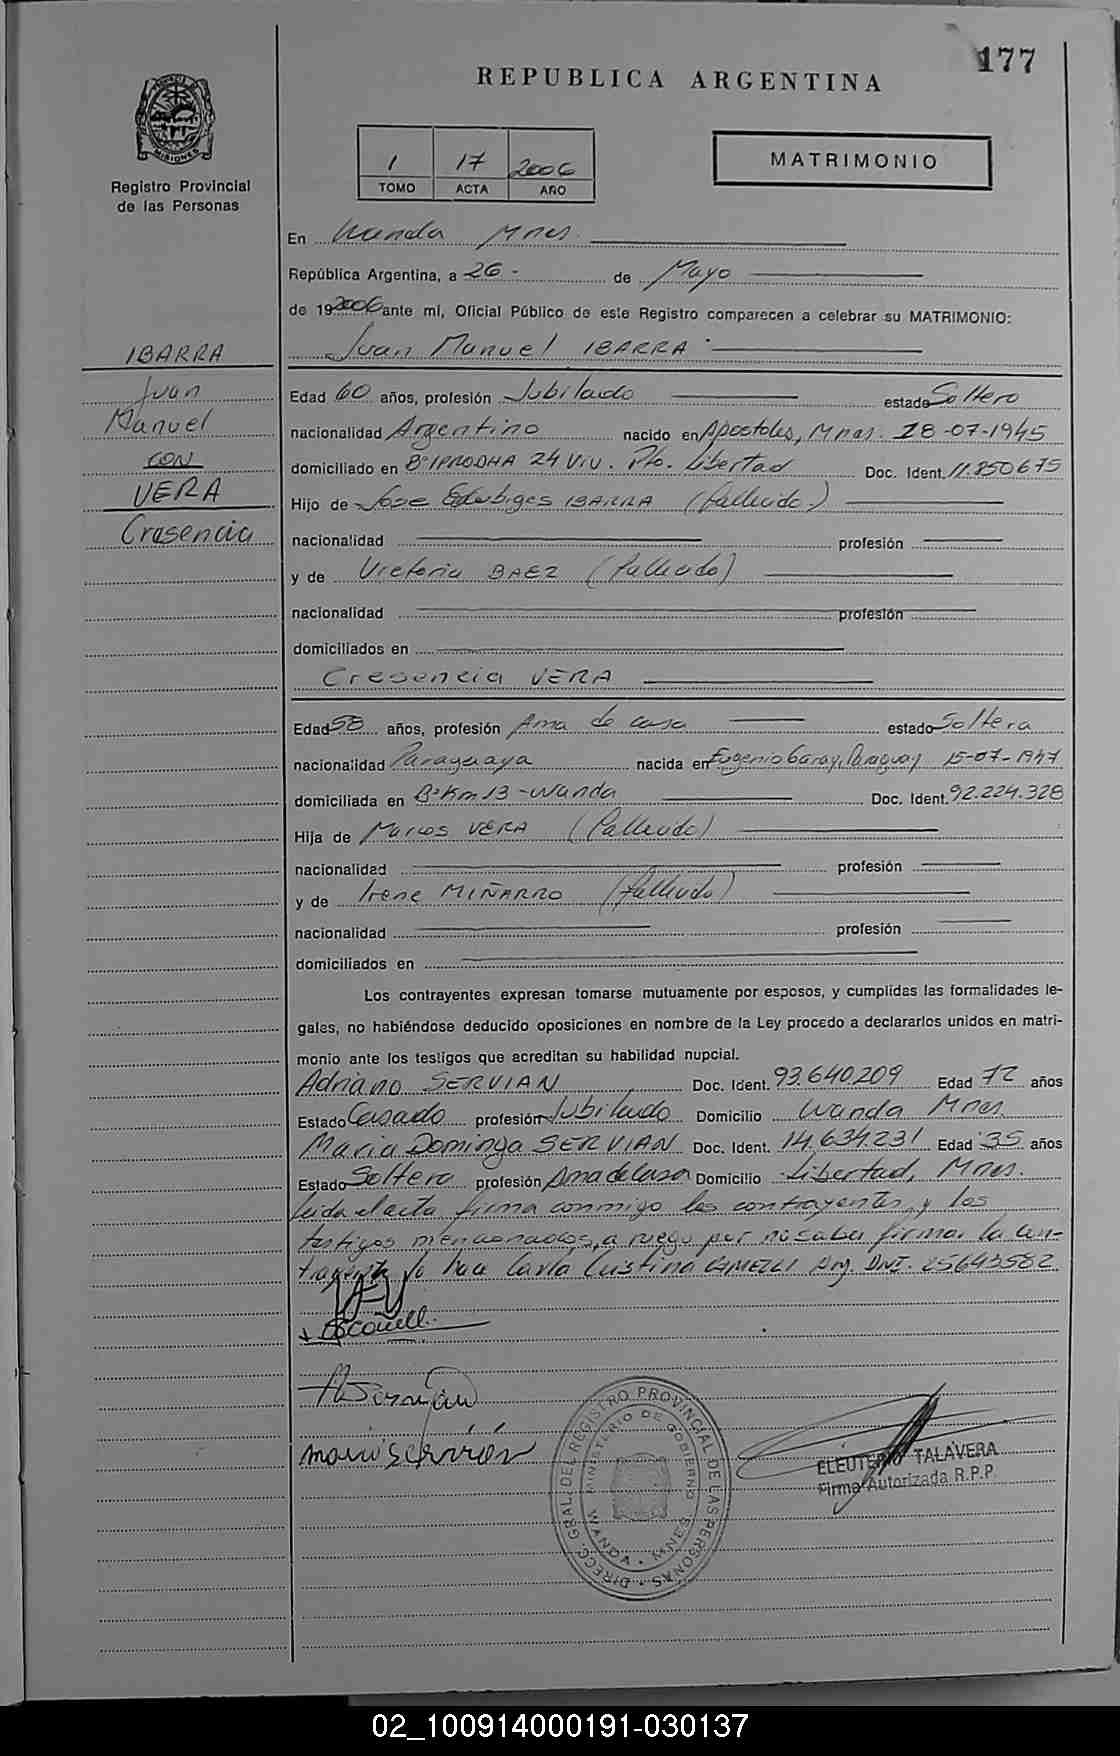 177
REPUBLICA ARGENTINA
MISIONES
Registro Provincial
de las Personas
1 17 2006
TOMO ACTA AÑO
MATRIMONIO
En Wanda Mnes.
República Argentina, a 26 - de Mayo
de 192006 ante mí, Oficial Público de este Registro comparecen a celebrar su MATRIMONIO:
Juan Manuel IBARRA
IBARRA
Juan
Manuel
CON
VERA
Cresencia
Edad 60 años, profesión Jubilado estado Soltero
nacionalidad Argentino nacido en Apostoles, Mnes. 28-07-1945
domiciliado en B° IPRODHA 24 Viv. Pto. Libertad Doc. Ident. 11.850675
Hijo de Jose Edubiges IBARRA (fallecido.)
nacionalidad profesión
y de Victoria BAEZ (fallecido)
nacionalidad profesión
domiciliados en
Cresencia VERA
Edad 58 años, profesión Ama de casa estado Soltera
nacionalidad Paraguaya nacida en Eugenio Garay, Paraguay 15-07-1947
domiciliada en B° Km 13 - Wanda Doc. Ident. 92.224.328
Hija de Marcos VERA (fallecido)
nacionalidad profesión
y de Irene MIÑARRO (fallecido)
nacionalidad profesión
domiciliados en
Los contrayentes expresan tomarse mutuamente por esposos, y cumplidas las formalidades le-
gales, no habiéndose deducido oposiciones en nombre de la Ley procedo a declararlos unidos en matri-
monio ante los testigos que acreditan su habilidad nupcial.
Adriano SERVIAN Doc. Ident. 93.640.209 Edad 72 años
Estado Casado profesión Jubilado Domicilio Wanda Mnes
Maria Dominga SERVIAN Doc. Ident. 14.634.231 Edad 35 años
Estado Soltera profesión Ama de Casa Domicilio Libertad, Mnes.
leida el acta firma conmigo los contrayentes y los
testigos mencionados, a ruego por no saber firmar la con-
trayente lo hace Carla Cristina Arg. DNI. 25643582
A Servian
maria servian
DIRECC. GRAL. DEL REGISTRO PROVINCIAL DE LAS PERSONAS
MINISTERIO DE GOBIERNO
WANDA - MNES.
ELEUTERIO TALAVERA
Firma Autorizada R.P.P.
02_100914000191-030137